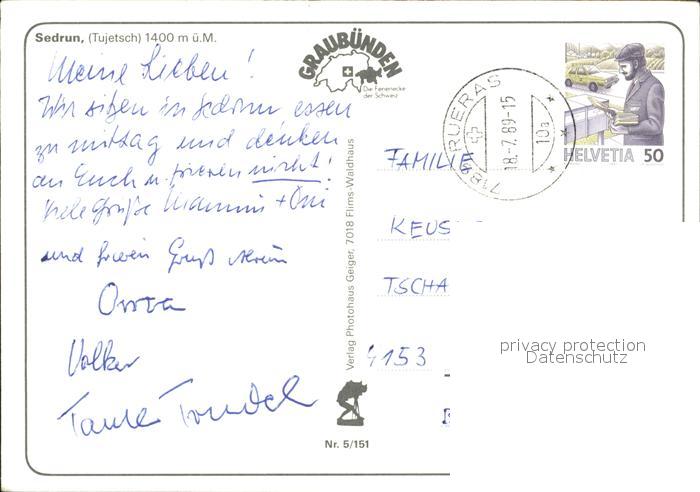 Sedrun, (Tujetsch) 1400 m ü.M.
Meine Lieben!
Wir sitzen in Sedrun essen
zu mittag und denken
an Euch u. frieren nicht!
Viele Grüße Mammi + Omi
und Gruß
Volker
Tante Trudel
GRAUBÜNDEN
Die Ferienecke
der Schweiz
Verlag Photohaus Geiger, 7018 Flims-Waldhaus
Nr. 5/151
7189 RUERAS
18.-7.89-15
10a
HELVETIA 50
FAMILIE
KEUS
TSCHA
4153
privacy protection
Datenschutz